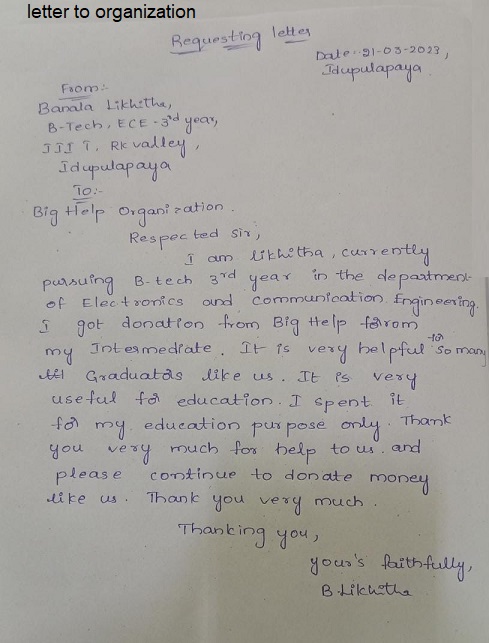 letter to organization
Requesting letter
Date:- 21-03-2023,
Idupulapaya
From:-
Banala Likhitha,
B-Tech, ECE-3rd year,
IIIT, Rk valley,
Idupulapaya
To:-
Big Help Organization.
Respected sir,
I am likhitha, currently
pursuing B-tech 3rd year in the department
of Electronics and communication Engineering.
I got donation from Big Help from
my Intermediate. It is very helpful for so many
Graduates like us. It is very
useful for education. I spent it
for my education purpose only. Thank
you very much for help to us. and
please continue to donate money
like us. Thank you very much.
Thanking you,
your's faithfully,
B.Likhitha